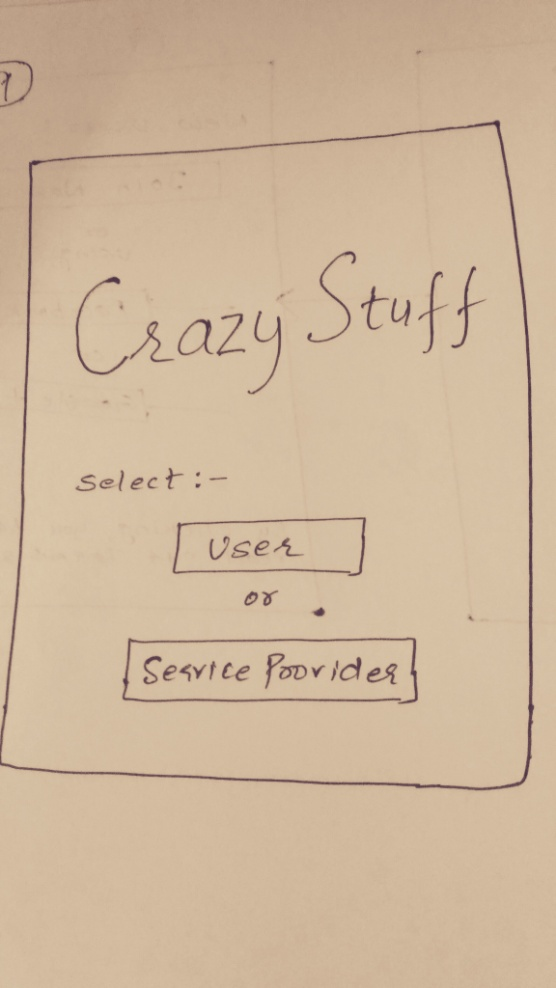 1
Crazy Stuff
Select :-
User
or
Service Provider